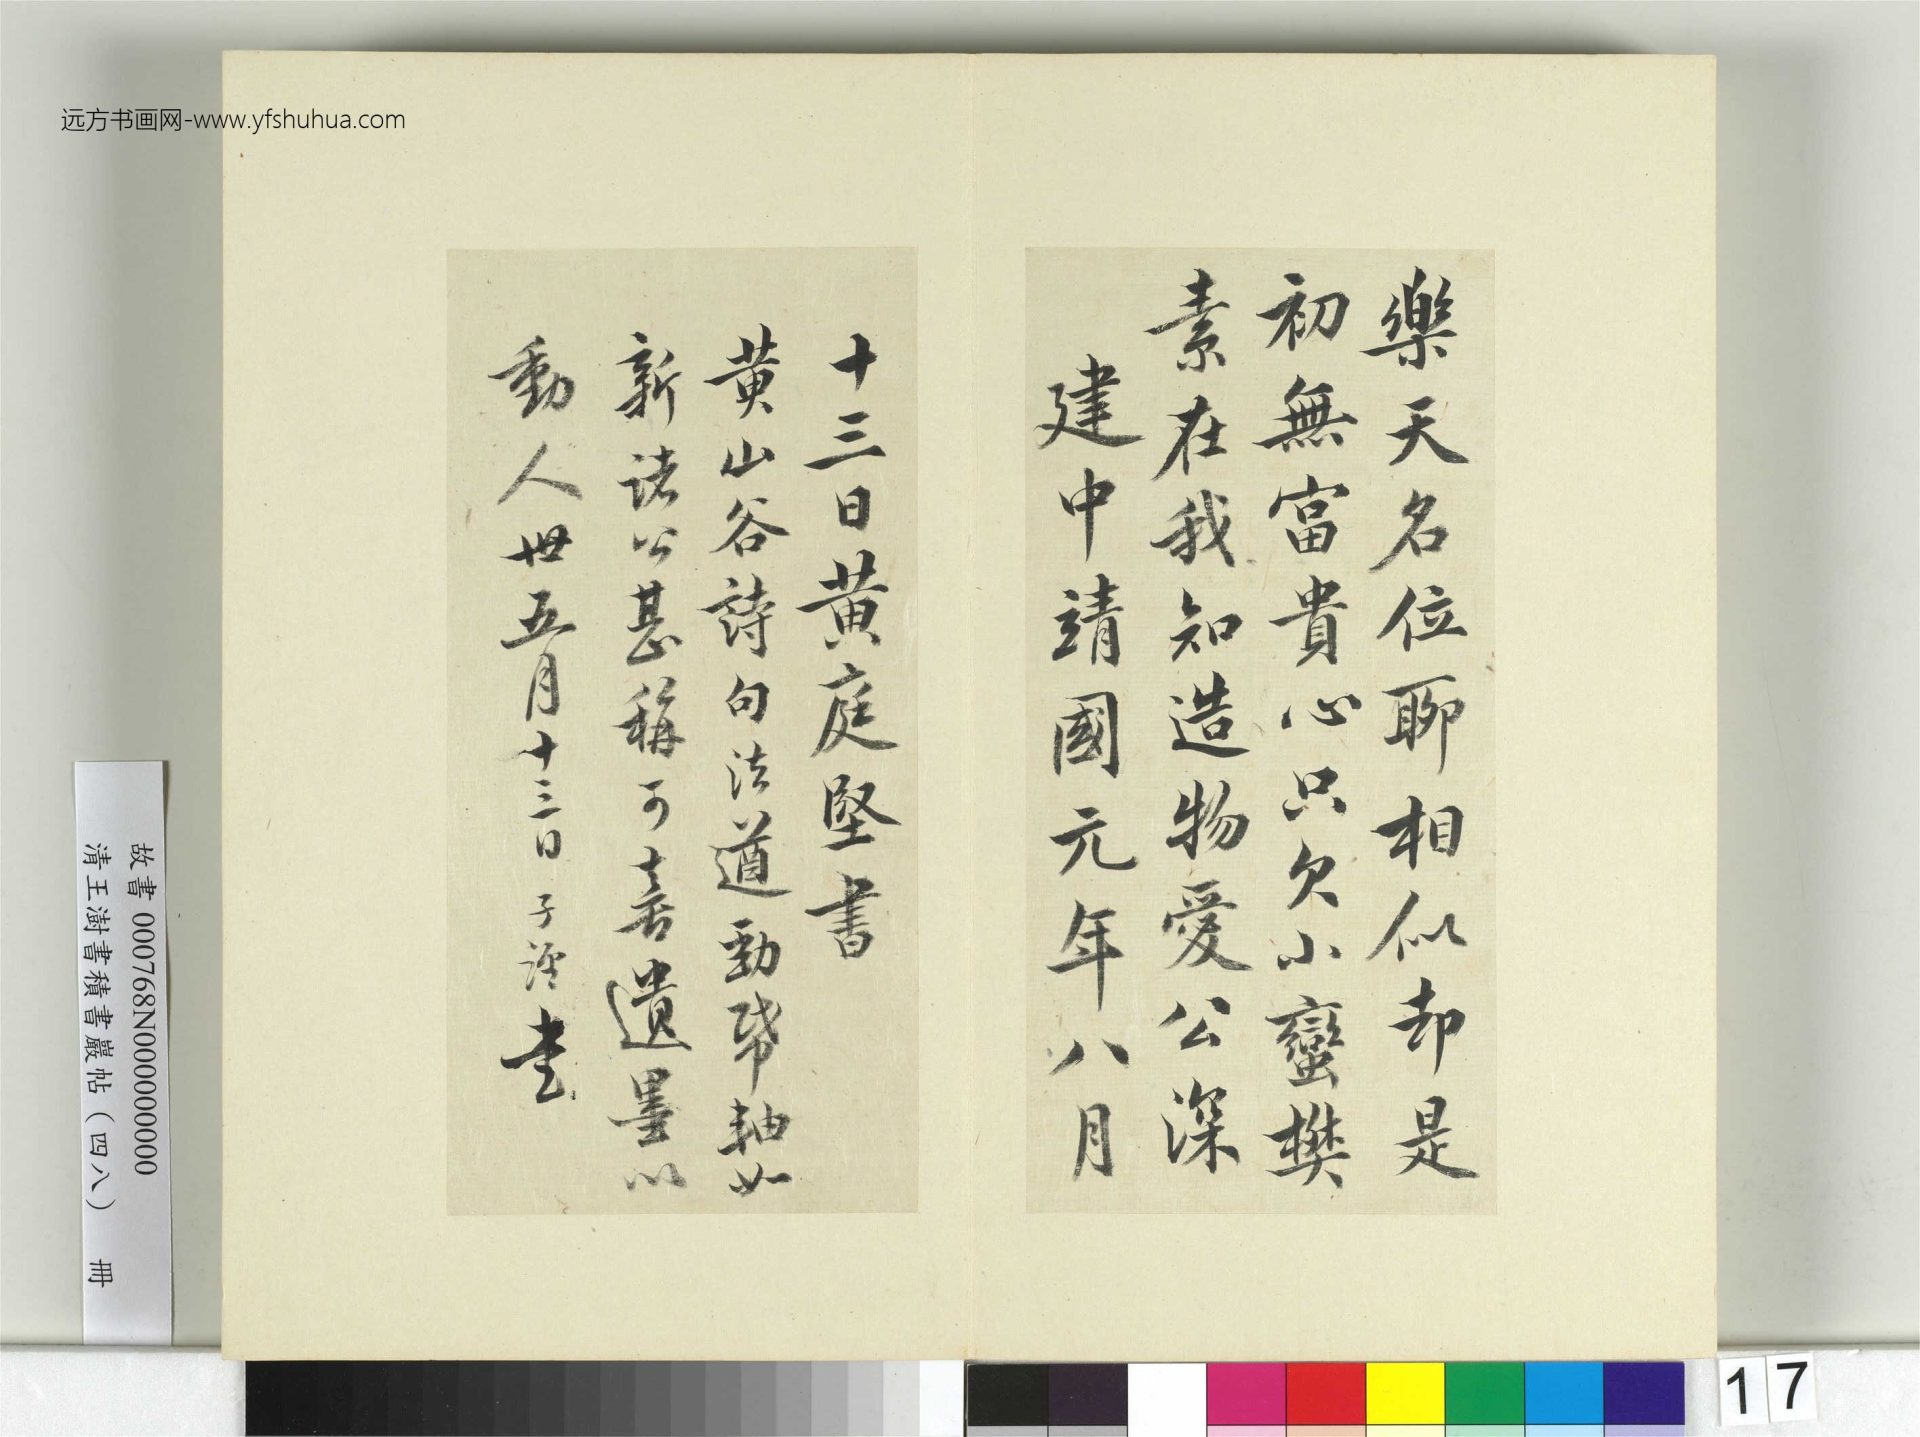 远方书画网-www.yfshuhua.com
樂天名位聊相似却是
初無富貴心只欠小蠻樊
素在我知造物愛公深
建中靖國元年八月
十三日黄庭堅書
黄山谷詩句法遒勁帋軸如
新諸公甚稱可喜遺墨以
動人世五月十三日子書
故書 000768N000000000
清王澍書積書巖帖(四八) 冊
17